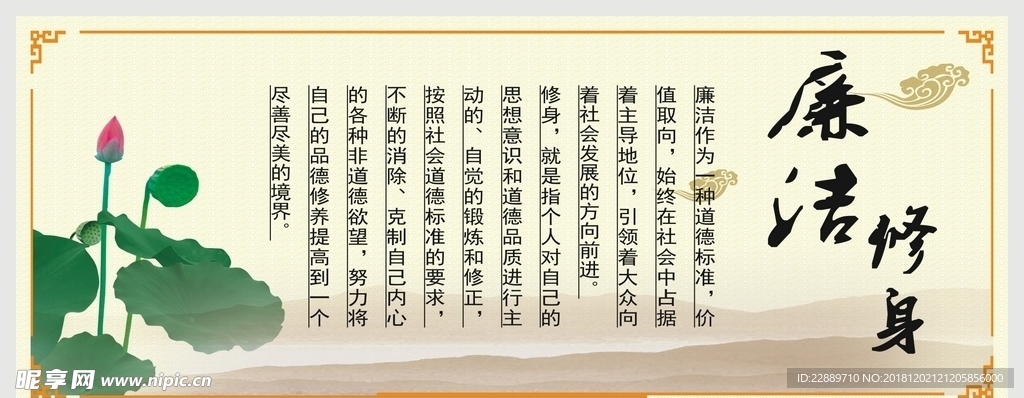 廉洁
修身
廉洁作为一种道德标准，价
值取向，始终在社会中占据
着主导地位，引领着大众向
着社会发展的方向前进。
修身，就是指个人对自己的
思想意识和道德品质进行主
动的、自觉的锻炼和修正，
按照社会道德标准的要求，
不断的消除、克制自己内心
的各种非道德欲望，努力将
自己的品德修养提高到一个
尽善尽美的境界。
昵享网 www.nipic.cn
ID:22889710 NO:20181202121205856000